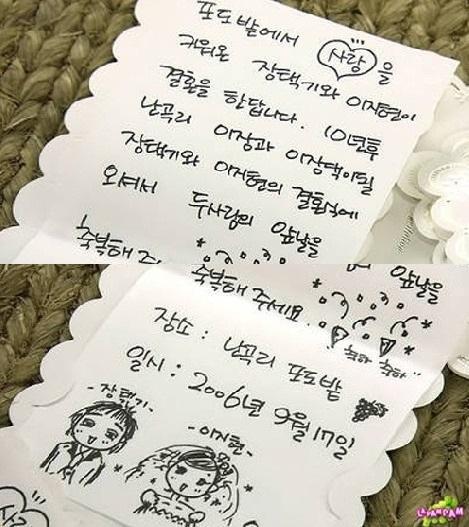 포도밭에서 사랑을
키워온 장택기와 이지현이
결혼을 한답니다. 10년후
난곡리 이장과 이장댁이될
장택기와 이지현의 결혼식에
와셔서 두사람의 앞날을
축복해 주
의 앞날을
축복해 주세요.
축하 축하
장소 : 난곡리 포도밭
일시 : 2006년 9월 17일
-장택기-
-이지현-